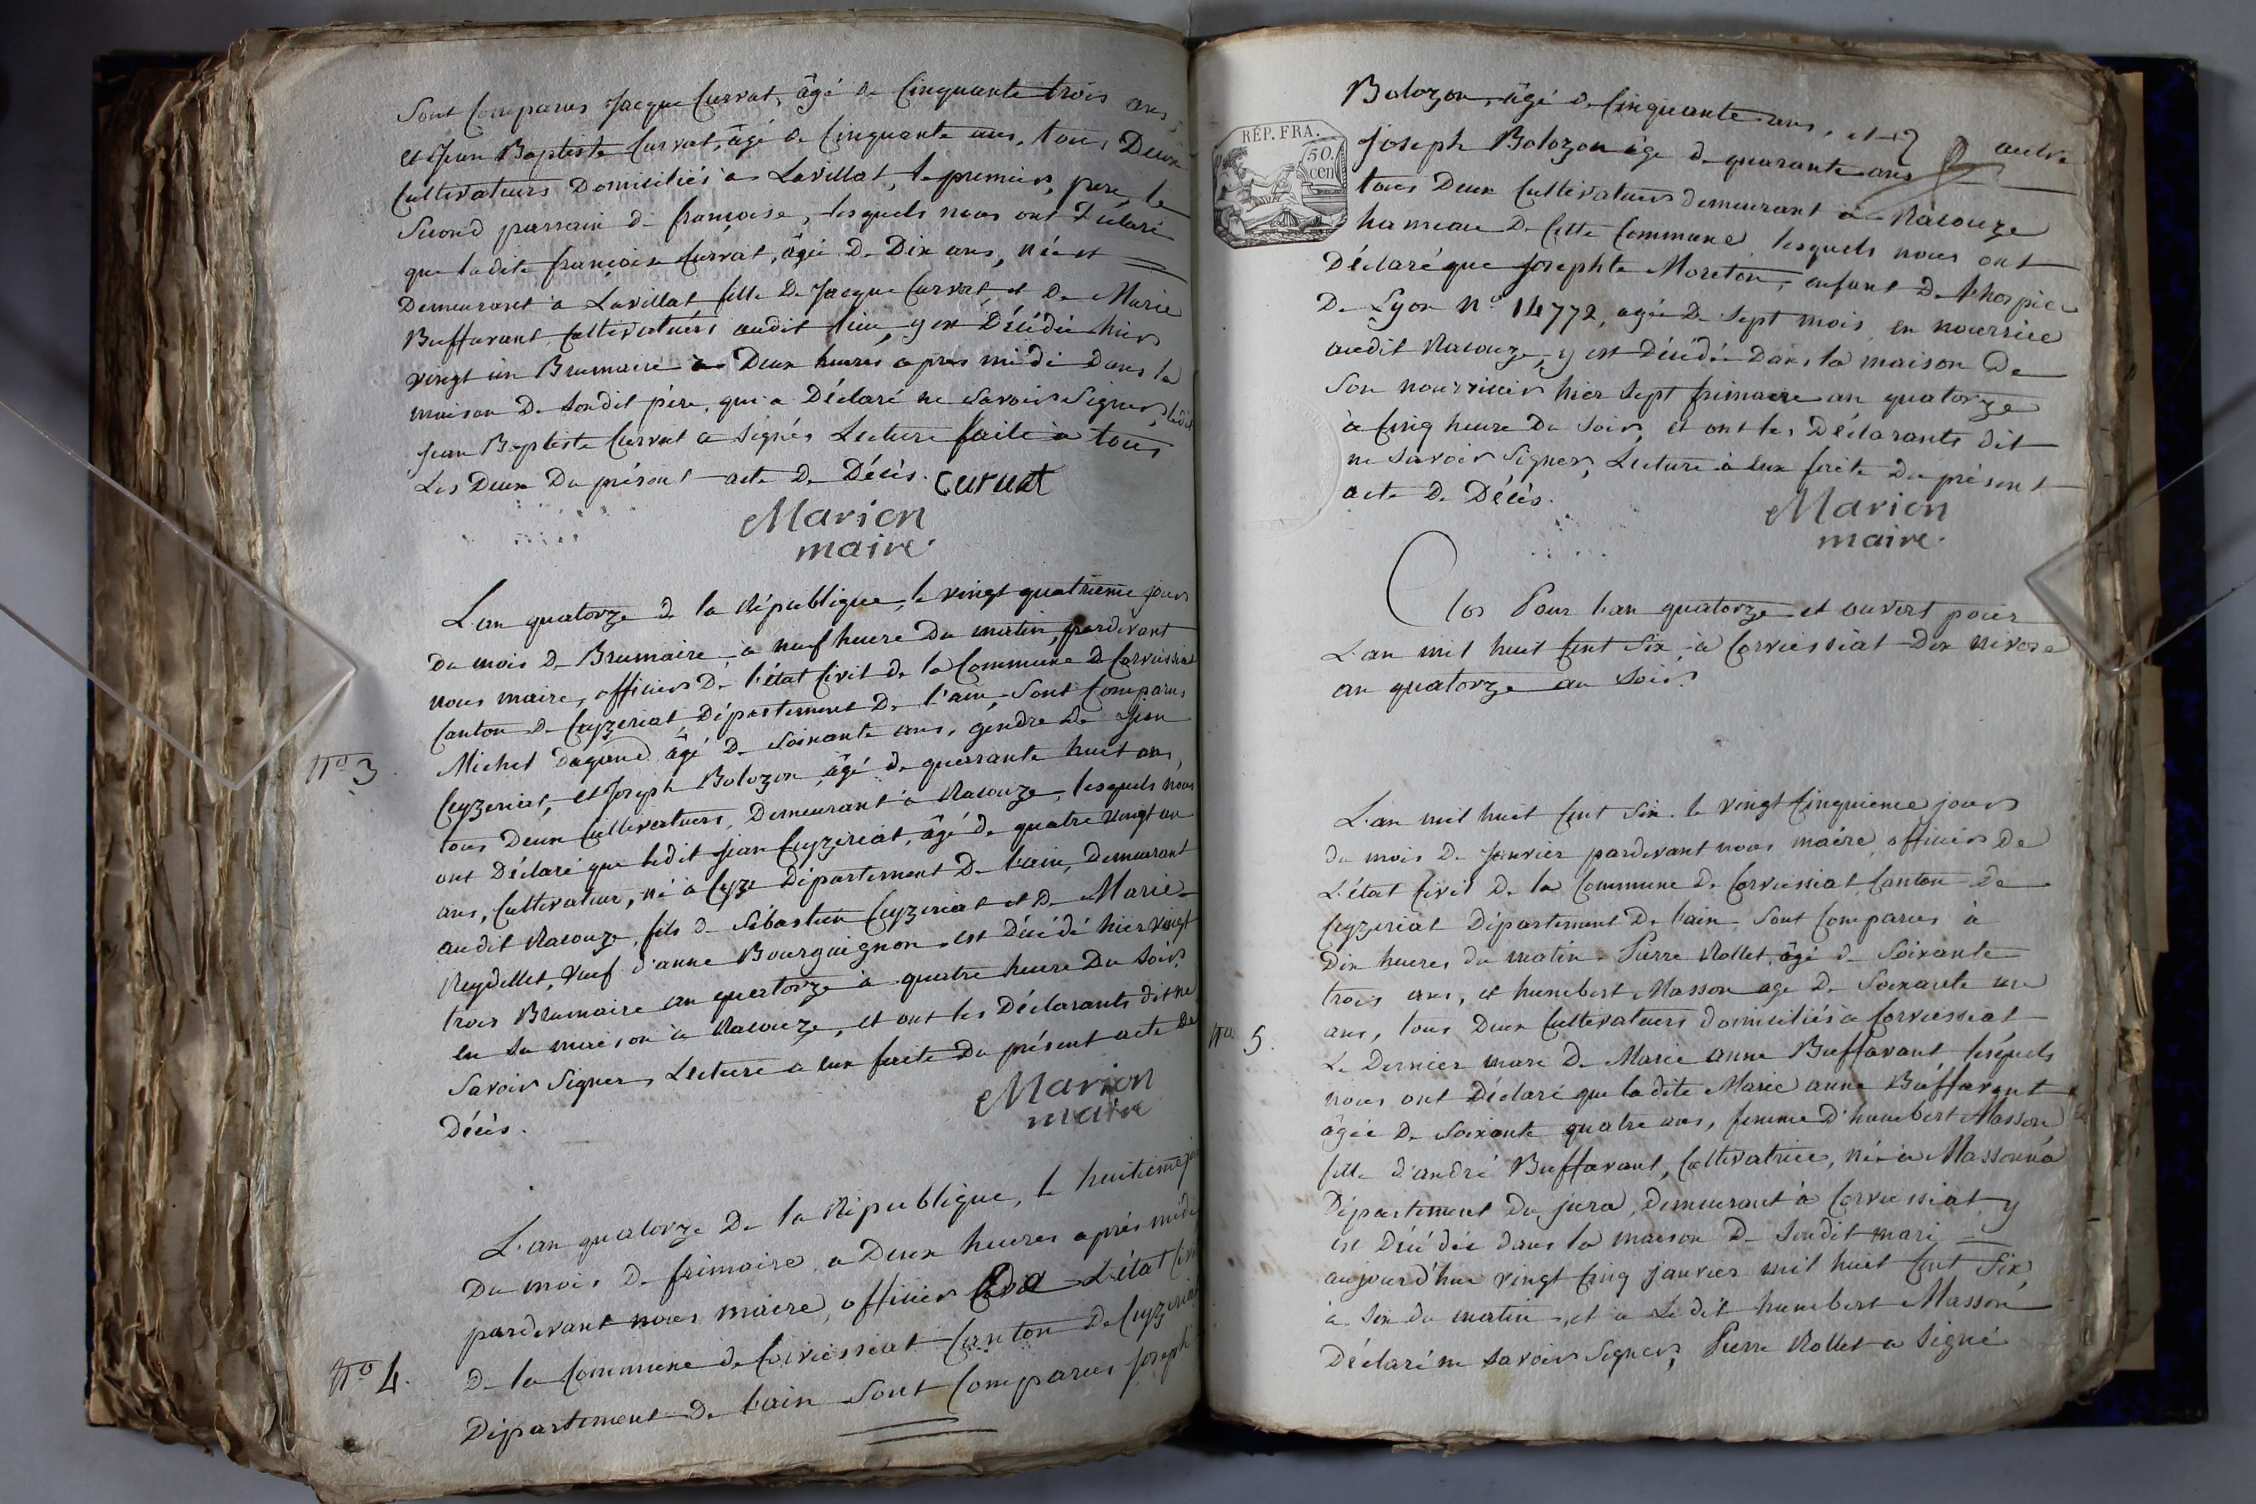 Sont Comparus Jacque Curvat, âgé de Cinquante trois ans
et Jean Baptiste Curvat, âgé de Cinquante ans, tous Deux
Cultivateurs Domiciliés à Lavillat, le premier, pere, le
Second parrain de françoise, lesquels nous ont Déclaré
que ladite françoise Curvat, âgée De Dix ans, née et
Demeurant à Lavillat fille De Jacque Curvat et De Marie
Buffavant Cultivateurs audit lieu, y est Décédée hier
vingt un Brumaire à Deux heures apres midi Dans la
maison De Sondit père, qui a Déclaré ne Savoir Signer, ledit
Jean Baptiste Curvat a Signés Lecture faite à tous
Les Deux Du présent acte De Décès. Curvat
Marion
maire.
L'an quatorze de la République, le vingt quatrieme jour
du mois De Brumaire, à neuf heure Du matin, pardevant
nous maire, officier De l'état Civil de la Commune De Corveissiat
Canton De Ceyzeriat, Département De l'ain, Sont Comparus
Michel Dagand âgé De Soixante ans, gendre de Jean
No 3.
Ceyzeriat, et Joseph Bolozon, âgé de quarante huit ans,
tous Deux Cultivateurs, Demeurant à Racouze, lesquels nous
ont Déclaré que ledit Jean Ceyzeriat, âgé de quatre vingt un
ans, Cultivateur, né à Cyze Département De l'ain, Demeurant
audit Racouze, fils de Sébastien Ceyzeriat et De Marie
Reydellet, veuf d'anne Bourguignon est Décédé hier vingt
trois Brumaire an quatorze à quatre heure Du Soir,
en Sa maison à Racouze, et ont les Déclarants dit ne
Savoir Signer, Lecture à eux faite Du présent acte De
Décès.
Marion
maire
L'an quatorze De la République, le huitieme
Du mois De frimaire, à Deux heures après midi
pardevant nous maire, officier De L'état Civil
De la Commune de Corveissiat Canton De Ceyzeriat
No 4.
Département De l'ain Sont Comparus Joseph
RÉP. FRA.
50.
cen
Bolozon, âgé de Cinquante ans, et autre
Joseph Bolozon âgé de quarante ans
tous Deux Cultivateurs demeurant à Racouze
hameau De Cette Commune, lesquels nous ont
Déclaré que Josephte Moreton, enfant De l'hospice
De Lyon No 14772, agée De Sept mois, en nourrice
audit Racouze, y est Décédée Dans la maison De
Son nourricier hier Sept frimaire an quatorze
à Cinq heure Du Soir, et ont les Déclarants dit
ne Savoir Signer, Lecture à eux faite Du présent
acte De Décès.
Marion
maire.
Clos Pour l'an quatorze et ouvert pour
L'an mil huit Cent Six, à Corveissiat Dix nivose
an quatorze au Soir.
L'an mil huit Cent Six. le vingt Cinquieme jour
du mois De Janvier pardevant nous maire officier De
L'état Civil De la Commune De Corveissiat Canton De
Ceyzeriat Département De l'ain Sont Comparus à
Dix heures du matin. Pierre Rollet, âgé de Soixante
trois ans, et humbert Masson agé De Soixante un
ans, tous Deux Cultivateurs domiciliés à Corveissiat
No 5.
Le Dernier mari De Marie anne Buffavant lesquels
nous ont Déclaré que ladite Marie anne Buffavant
âgée De Soixante quatre ans, femme d'humbert Masson
fille d'andré Buffavant, Cultivatrice, née à Massonna
Département Du jura, demeurant à Corveissiat, y
est Décédée dans la maison De Sondit mari
aujourd'hui vingt Cinq janvier mil huit Cent Six,
à Six du matin, et a Ledit humbert Masson
Déclaré ne Savoir Signer, Pierre Rollet a Signé